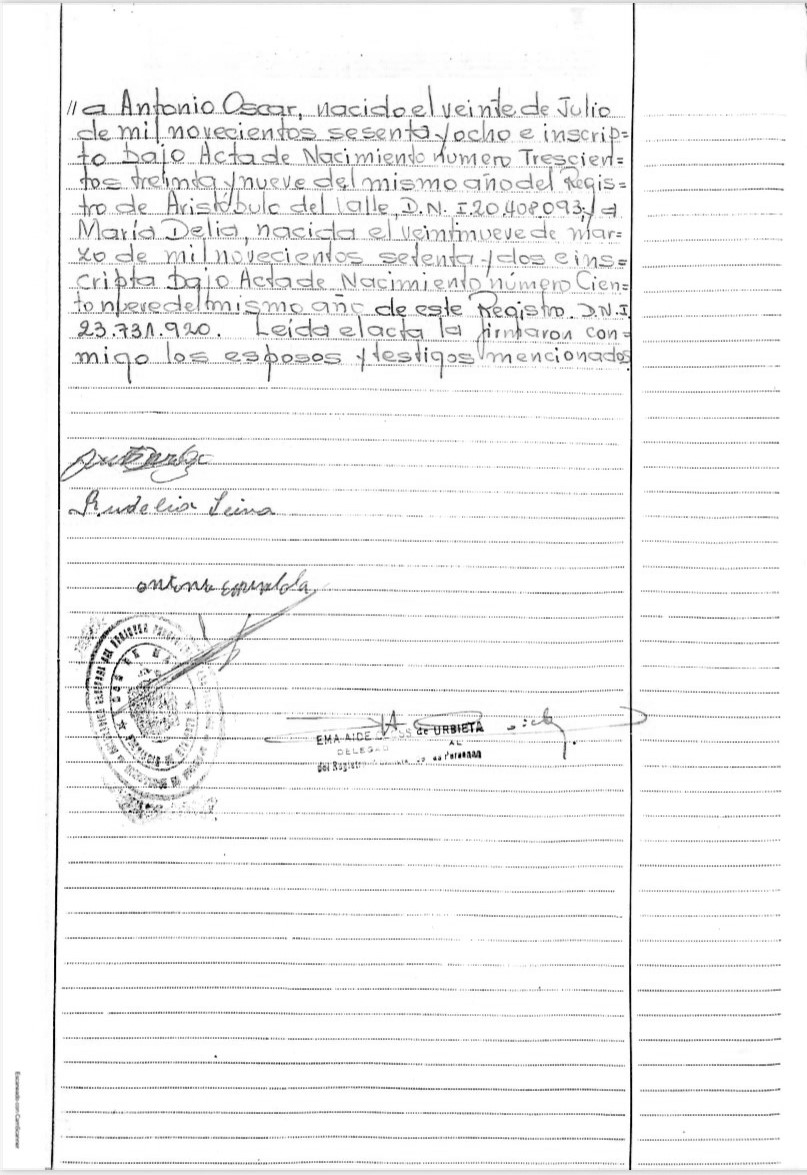 // a Antonio Oscar, nacido el veinte de Julio
de mil novecientos sesenta y ocho e inscrip=
to bajo Acta de Nacimiento número Trescien=
tos treinta y nueve del mismo año del Regis=
tro de Aristóbulo del Valle, D.N.I. 20.408.093; y a
María Delia, nacida el veintinueve de mar=
zo de mil novecientos setenta y dos e ins=
cripta bajo Acta de Nacimiento número Cien=
to nueve del mismo año de este Registro. D.N.I.
23.731.920. Leída el acta la firmaron con=
migo los esposos y testigos mencionados
EMA AIDE de URBIETA
del Registro de las Personas
Escaneado con CamScanner